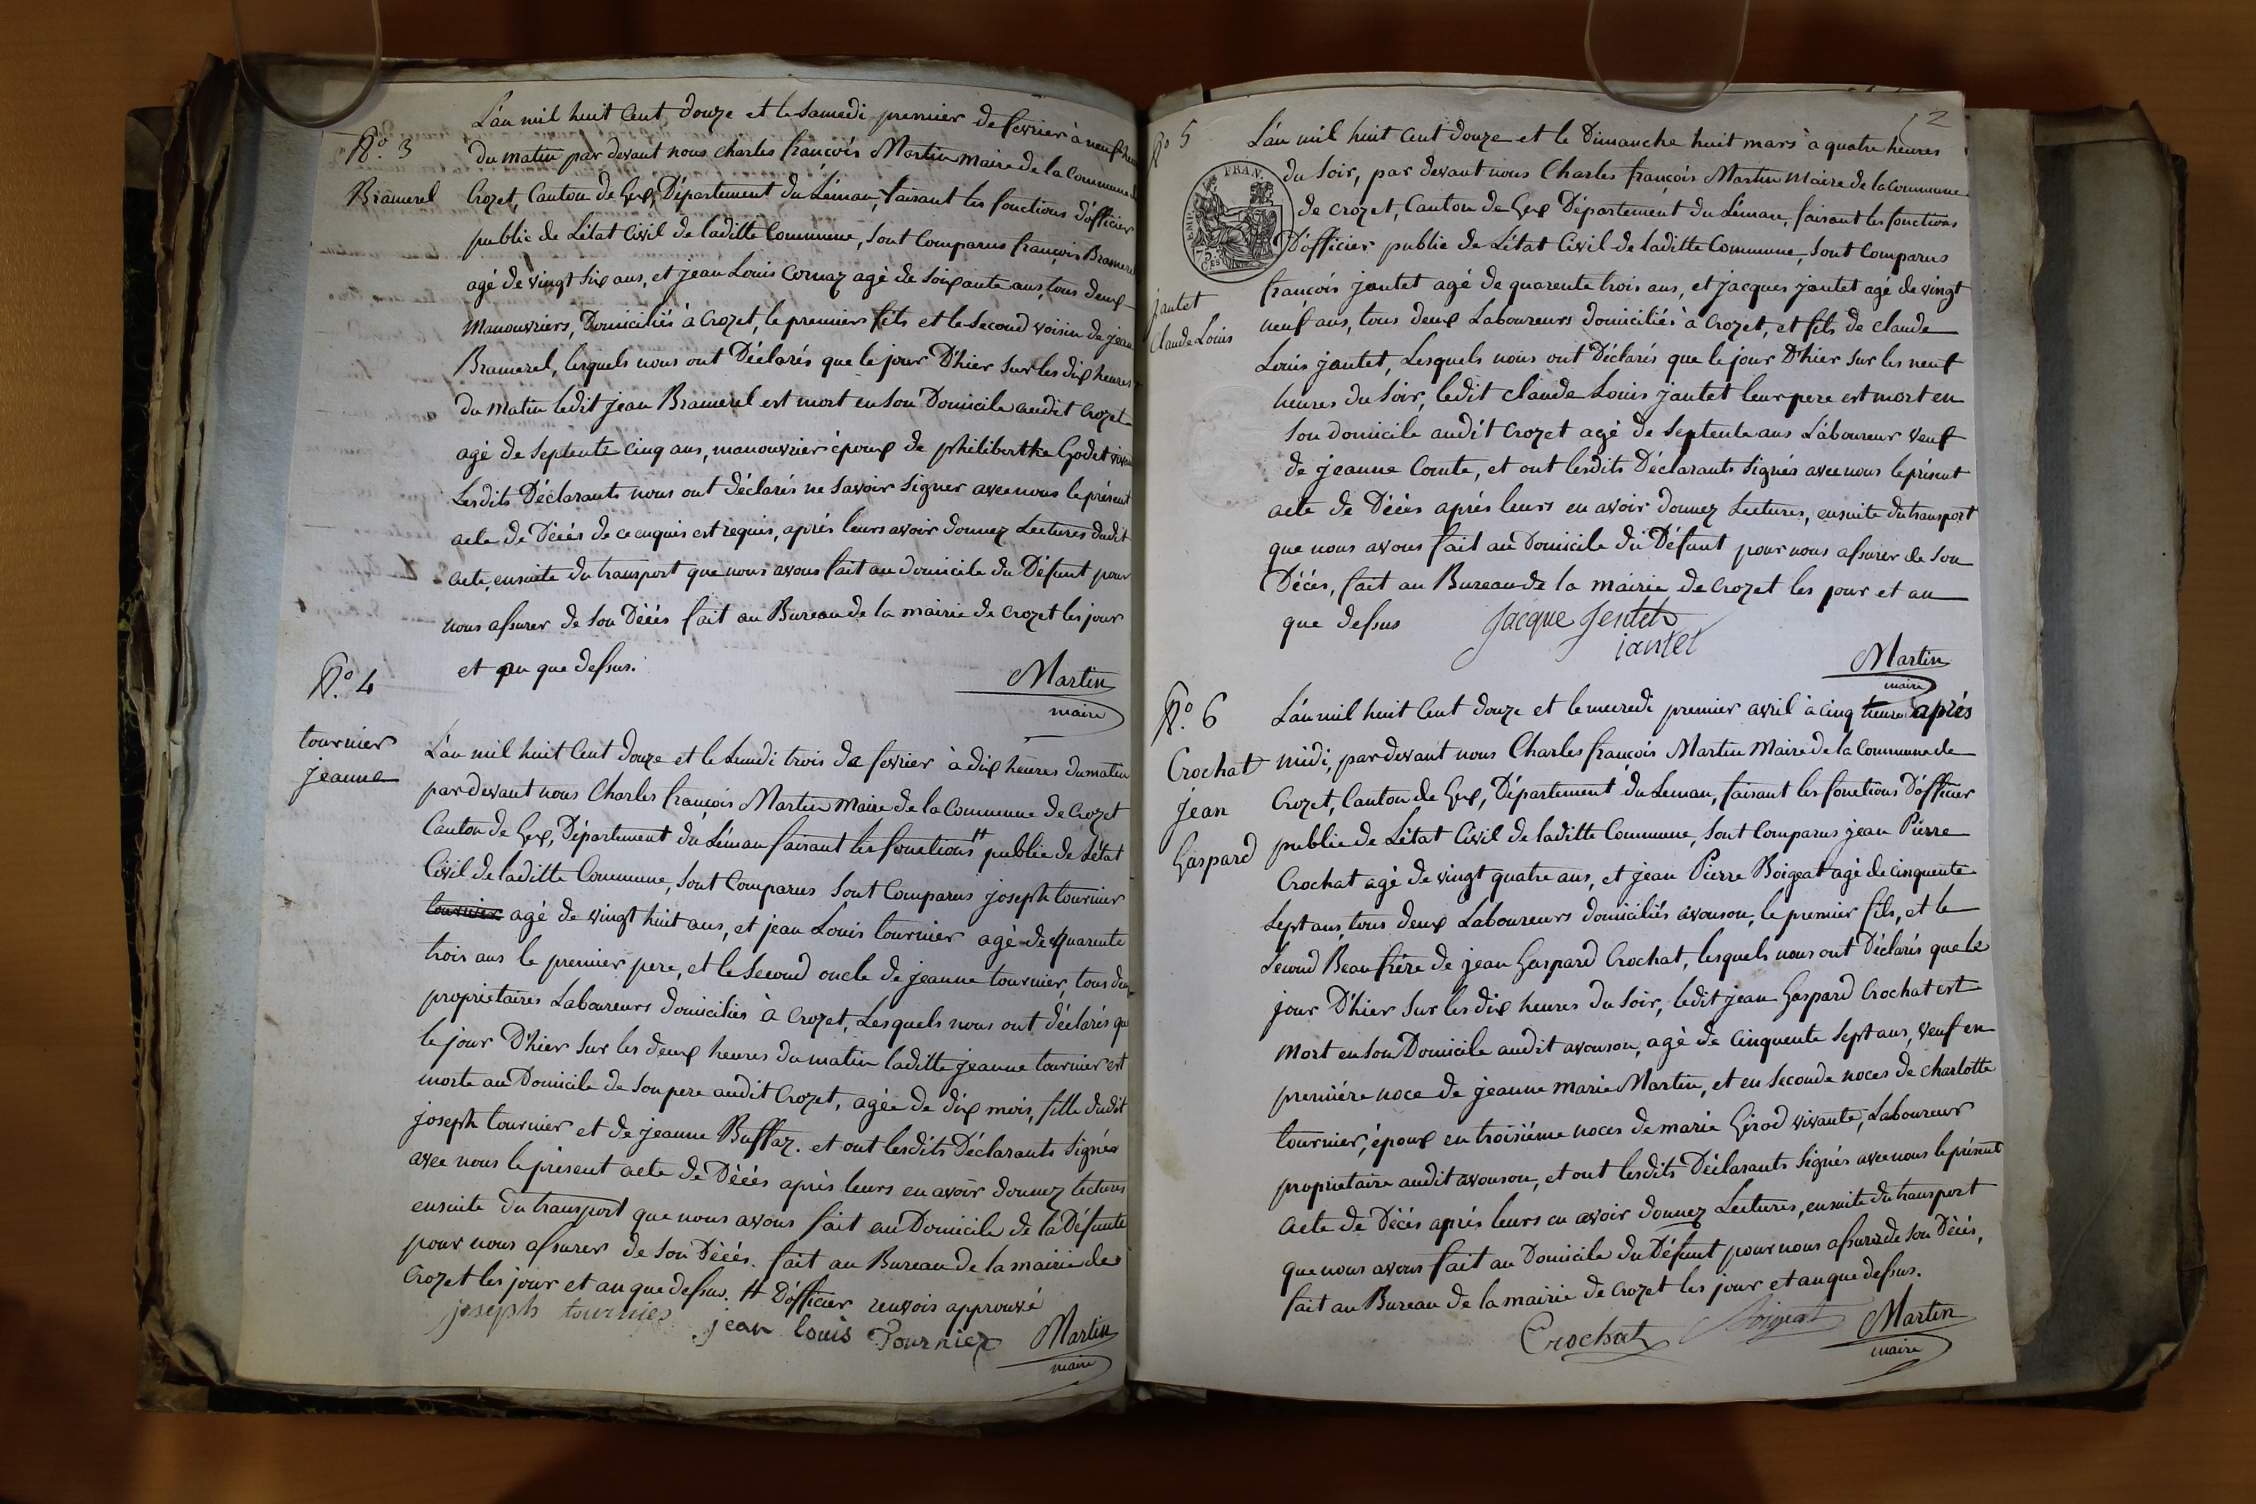 N.º 3
Bramerel
L'an mil huit Cent douze et le samedi premier de fevrier à neuf heures
du matin par devant nous charles françois Martin maire de la Commune de
Crozet, Canton de Gex, Département du Léman, faisant les fonctions d'officier
public de L'état Civil de laditte Commune, sont Comparus françois Bramerel
agé de vingt six ans, et jean Louis Cornaz agé de soixante ans, tous deux
Manouvriers, Domiciliés à Crozet, le premier fils et le Second voisin de jean
Bramerel, lesquels nous ont Déclarés que le jour D'hier sur les dix heures
du matin ledit jean Bramerel est mort en son Domicile audit Crozet
agé de septente Cinq ans, manouvrier époux de philiberthe Godet vivante
Lesdits Déclarants nous ont déclarés ne savoir signer avec nous le présent
acte de Décés de ce enquis est requis, aprés leurs avoir donnez Lectures dudit
acte, ensuite du transport que nous avons fait au domicile du Défunt pour
nous assurer de son Décés fait au Bureau de la mairie de Crozet les jour
et an que dessus.
Martin
maire
N.º 4
tournier
jeanne
L'an mil huit Cent douze et le Lundi trois de fevrier à dix heures du matin
par devant nous Charles françois Martin Maire de la Commune de Crozet
Canton de Gex, Département du Léman faisant les fonctions # public de L'état
Civil de laditte Commune, sont Comparus sont Comparus joseph tournier
tournier agé de vingt huit ans, et jean Louis tournier agé de quarente
trois ans le premier pere, et le Second oncle de jeanne tournier, tous deux
proprietaires Laboureurs domiciliés à Crozet, Lesquels nous ont déclarés que
le jour D'hier sur les deux heures du matin laditte jeanne tournier est
morte au Domicile de son pere audit Crozet, agée de dix mois, fille dudit
joseph tournier et de jeanne Buffaz. et ont lesdits Déclarants Signés
avec nous le présent acte de Décés aprés leurs en avoir donnez lectures
ensuite du transport que nous avons fait au Domicile de la Défunte
pour nous assurer de son Décés. fait au Bureau de la mairie de
Crozet les jour et an que dessus. # D'officier renvois approuvé
joseph tournier
jean louis Tournier
Martin
maire
2
Nº 5
FRAN.
jantet
Claude Louis
L'an mil huit Cent douze et le Dimanche huit mars à quatre heures
du soir, par devant nous Charles françois Martin Maire de la Commune
de crozet, Canton de Gex Département du Léman, faisant les fonctions
D'officier public de L'état Civil de laditte Commune, sont Comparus
françois jantet agé de quarente trois ans, et jacques jantet agé de vingt
neuf ans, tous deux Laboureurs domiciliés à Crozet, et fils de claude
Louis jantet, Lesquels nous ont Déclarés que le jour D'hier sur les neuf
heures du soir, ledit claude Louis jantet leur pere est mort en
son domicile audit Crozet agé de septente ans Laboureur veuf
de jeanne Comte, et ont lesdits Déclarants signés avec nous le présent
acte de Décés aprés leurs en avoir donnez Lectures, ensuite du transport
que nous avons fait au Domicile du Défunt pour nous assurer de son
Décés, fait au Bureau de la mairie de Crozet les jour et an
que dessus
Jacque Jentet
iantet
Martin
maire
N.º 6
Crochat
jean
Gaspard
L'an mil huit Cent douze et le mecredi premier avril à cinq heures après
midi, par devant nous Charles françois Martin Maire de la Commune de
Crozet, Canton de Gex, Département du Leman, faisant les fonctions D'officier
public de L'état Civil de laditte Commune, sont Comparus jean Pierre
Crochat agé de vingt quatre ans, et jean Pierre Boigeat agé de cinquente
sept ans, tous deux Laboureurs domiciliés avouson, le premier fils, et le
Second Beau frére de jean Gaspard Crochat, lesquels nous ont Déclarés que le
jour D'hier sur les dix heures du soir, ledit jean Gaspard Crochat est
Mort en son Domicile audit avouson, agé de Cinquente sept ans, veuf en
premiére noce de jeanne marie Martin, et en seconde noces de charlotte
tournier, époux en troisiéme noces de marie Girod vivante, Laboureur
proprietaire audit avouson, et ont lesdits Déclarants signés avec nous le présent
acte de Décés aprés leurs en avoir donnez Lectures, ensuite du transport
que nous avons fait au Domicile du Défunt pour nous assurer de son Décés,
fait au Bureau de la mairie de Crozet les jour et an que dessus.
Crochat
Boigeat
Martin
maire